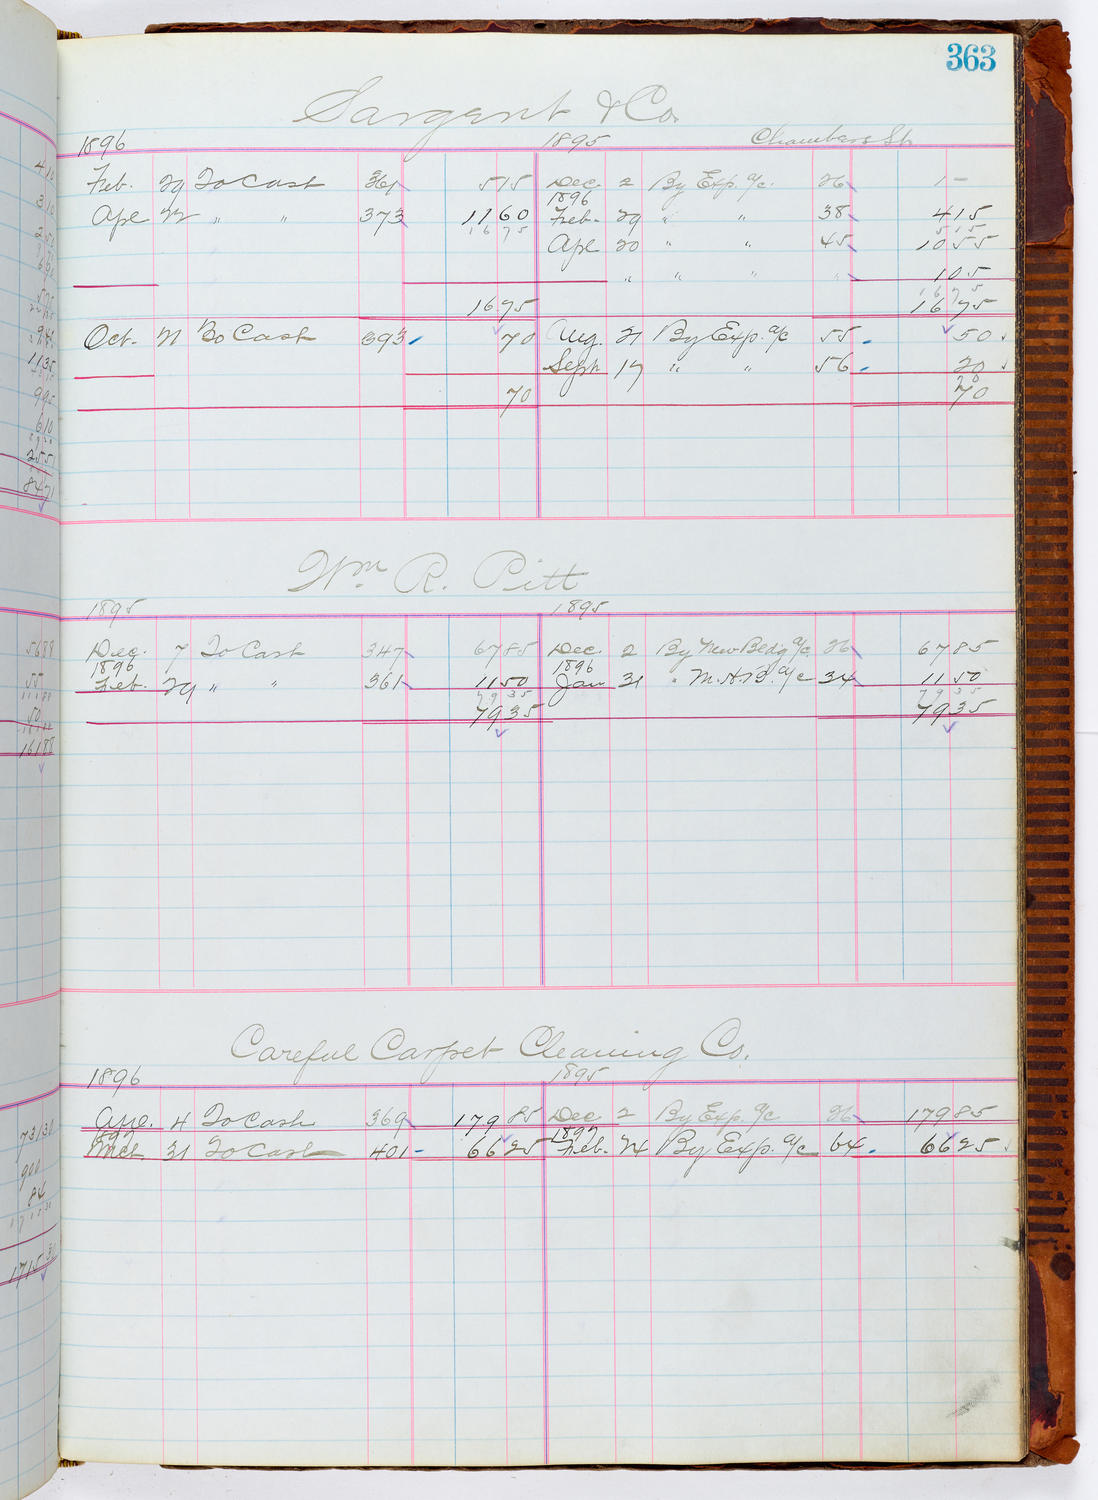 363
Sargent & Co.
1896 1895 Chambers St.
Feb. 29 To Cash 361 5 15 Dec. 2 By Exp. a/c. 26 1 —
1896
Apl 22 " " 373 11 60 Feb. 29 " " 38 4 15
16 75 5 15
Apl 20 " " 45 10 55
" " " " 1 05
16 75
16 75 16 75
Oct. 21 To Cash 393 70 Aug. 21 By Exp. a/c 55 50
Sept 17 " " 56 20
70
70 70
Wm R. Pitt
1895 1895
Dec. 7 To Cash 347 67 85 Dec. 2 By New Bldg a/c 26 67 85
1896 1896
Feb. 29 " " 361 11 50 Jan 31 " M.A.B. a/c 34 11 50
79 35 79 35
79 35 79 35
Careful Carpet Cleaning Co.
1896 1895
Apl. 4 To Cash 369 179 85 Dec 2 By Exp. a/c 26 179 85
1897 1897
Mch. 31 To Cash 401 66 25 Feb. 24 By Exp. a/c 64 66 25